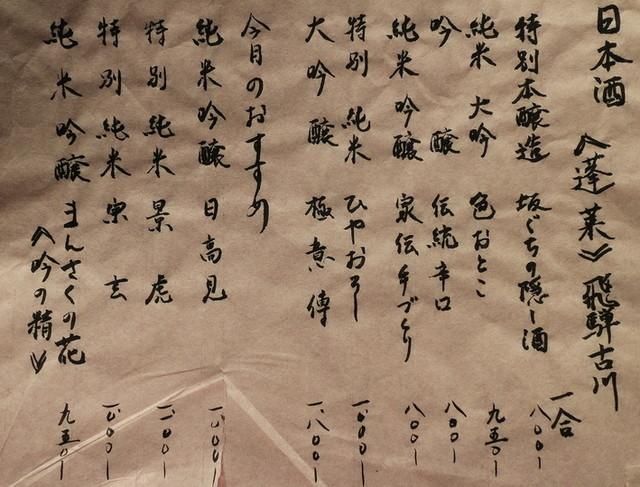 日本酒 《蓬莱》 飛騨古川
一合
特別本醸造 坂ぐちの隠し酒 八〇〇-
純米大吟 色おとこ 九五〇-
吟醸 伝統辛口 八〇〇-
純米吟醸 家伝手づくり 八〇〇-
特別純米 ひやおろし 一、〇〇〇-
大吟醸 極意傳 一、八〇〇-
今月のおすすめ
純米吟醸 日高見 一、〇〇〇-
特別純米 景虎 一、〇〇〇-
特別純米 宗玄 一、〇〇〇-
純米吟醸 まんさくの花 九五〇-
《吟の精》